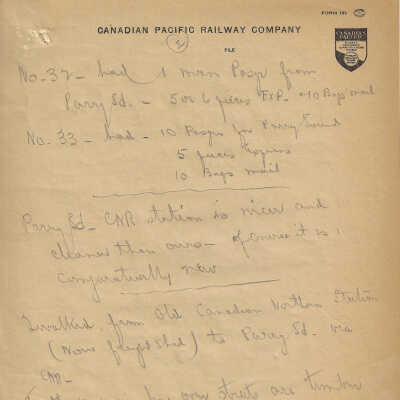 FORM 101
CANADIAN PACIFIC RAILWAY COMPANY
2
FILE
CANADIAN PACIFIC
No. 32 - had 1 man Psgr from
Parry Sd. - 5 or 6 pieces EXP. - 10 Bags mail
No. 33 - had - 10 Psgrs for Parry Sound
5 pieces Express
10 Bags mail
Parry Sd. CNR station is nicer and
cleaner than ours - of course it is
comparatively new
I walked from Old Canadian Northern Station
(Now freight shed) to Parry Sd. via
CNR -
streets are